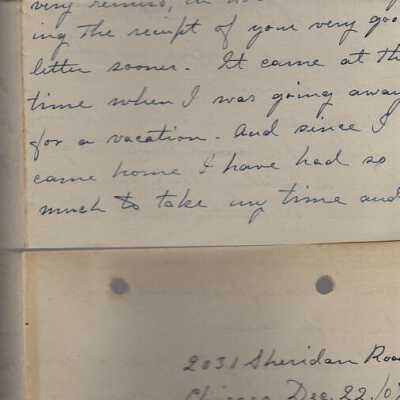 very remiss, in
ing the receipt of your very goo
letter sooner. It came at th
time when I was going away
for a vacation. And since I
came home I have had so
much to take my time and
2031 Sheridan Road
Chicago Dec. 22